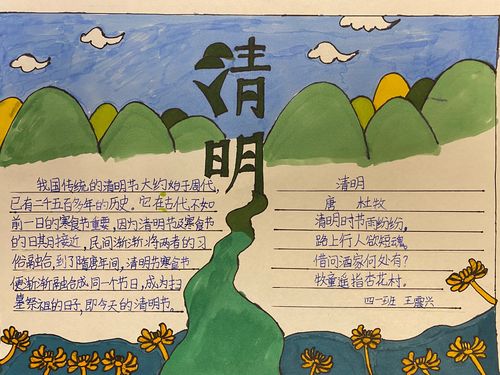 清明
我国传统的清明节大约始于周代，
已有二千五百多年的历史。它在古代不如
前一日的寒食节重要，因为清明节及寒食节
的日其月接近，民间渐渐将两者的习
俗融合，到了隋唐年间，清明节寒食节
便渐渐融合成同一个节日，成为扫
墓祭祖的日子，即今天的清明节。
清明
唐 杜牧
清明时节雨纷纷，
路上行人欲短魂。
借问酒家何处有？
牧童遥指杏花村。
四一班 王震兴